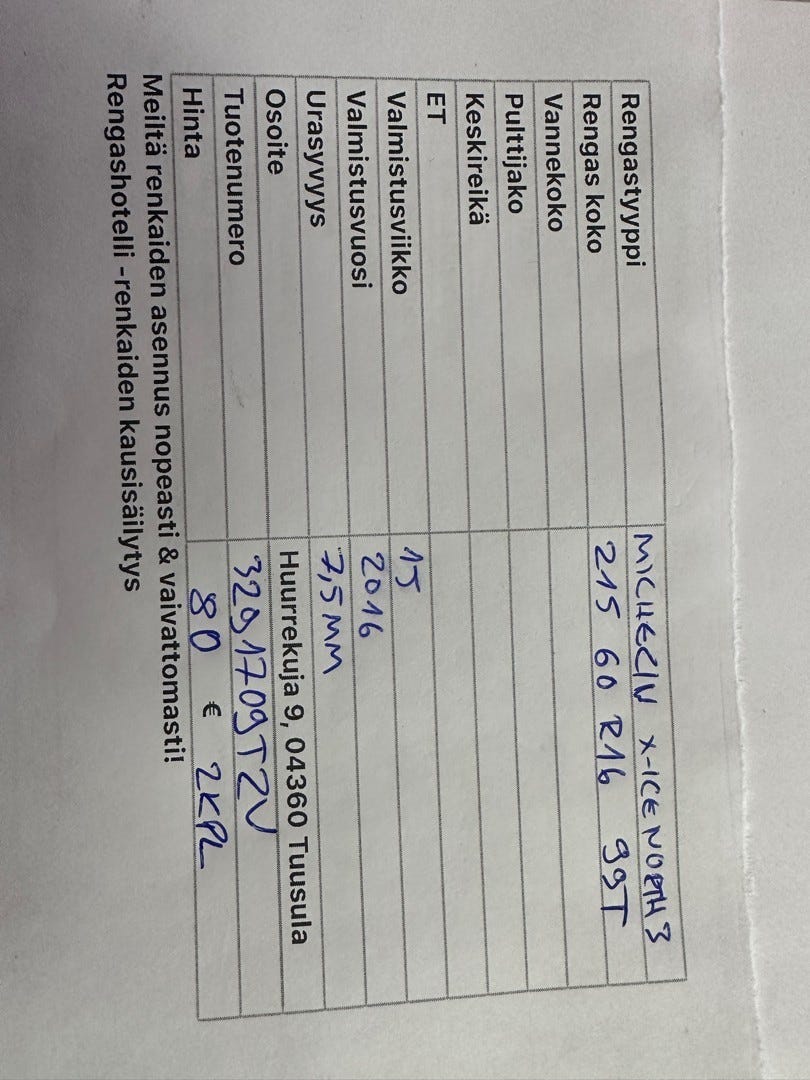 Rengastyyppi MICHELIN X-ICE NORTH 3
Rengas koko 215 60 R16 99T
Vannekoko
Pulttijako
Keskireikä
ET
Valmistusviikko 15
Valmistusvuosi 2016
Urasyvyys 7,5 MM
Osoite Huurrekuja 9, 04360 Tuusula
Tuotenumero 3291709TZV
Hinta 80 € 2KPL
Meiltä renkaiden asennus nopeasti & vaivattomasti!
Rengashotelli -renkaiden kausisäilytys